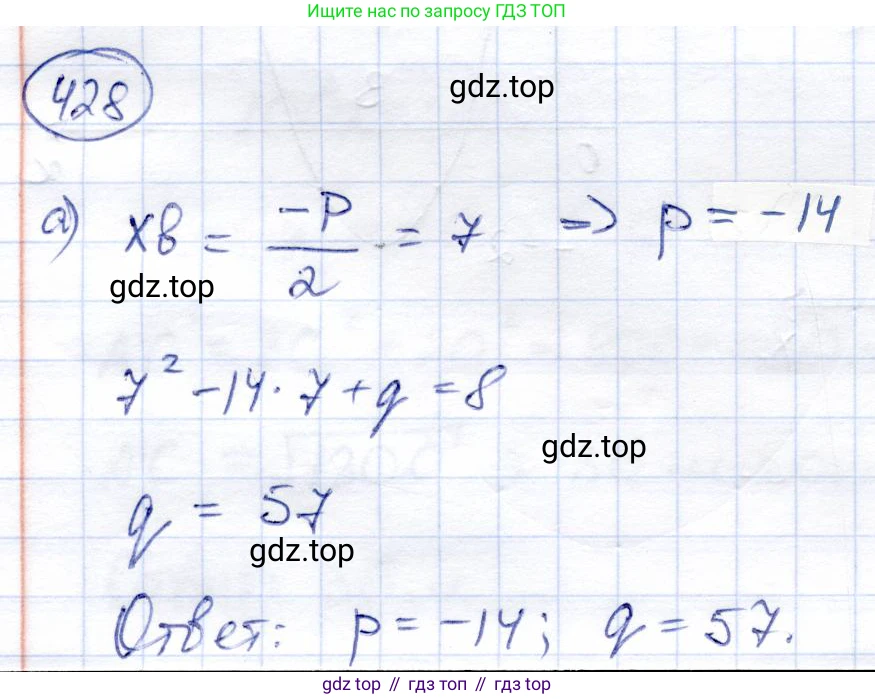 Ищите нас по запросу ГДЗ ТОП
428
gdz.top
а) xв = -p/2 = 7 => p = -14
gdz.top
7² - 14 · 7 + q = 8
gdz.top
q = 57
gdz.top
Ответ: p = -14; q = 57.
gdz top // гдз топ // gdz top